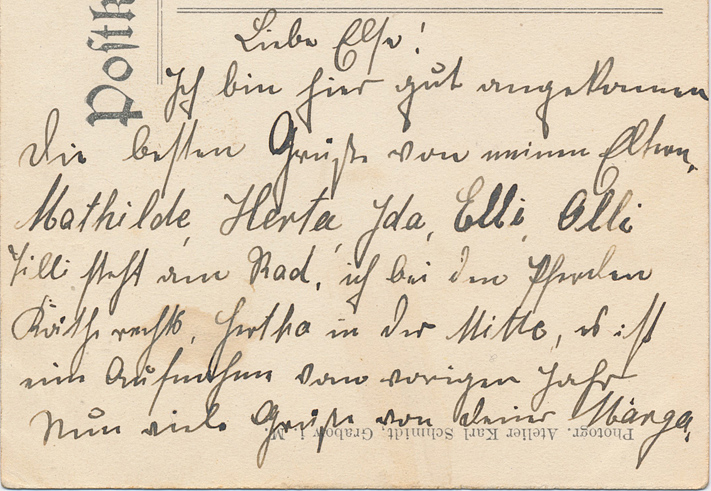 Postk
Liebe Else!
Ich bin hier gut angekommen
Die besten Grüße von meinen Eltern,
Mathilde, Herta, Ida, Elli, Olli
Tilli steht am Rad, ich bei den Pferden
Käthe rechts, Hertha in der Mitte, es ist
eine Aufnahme vom vorigen Jahr
Nun viele Grüße von deiner Marga.
Photogr. Atelier Karl Schmidt, Grabow i. M.